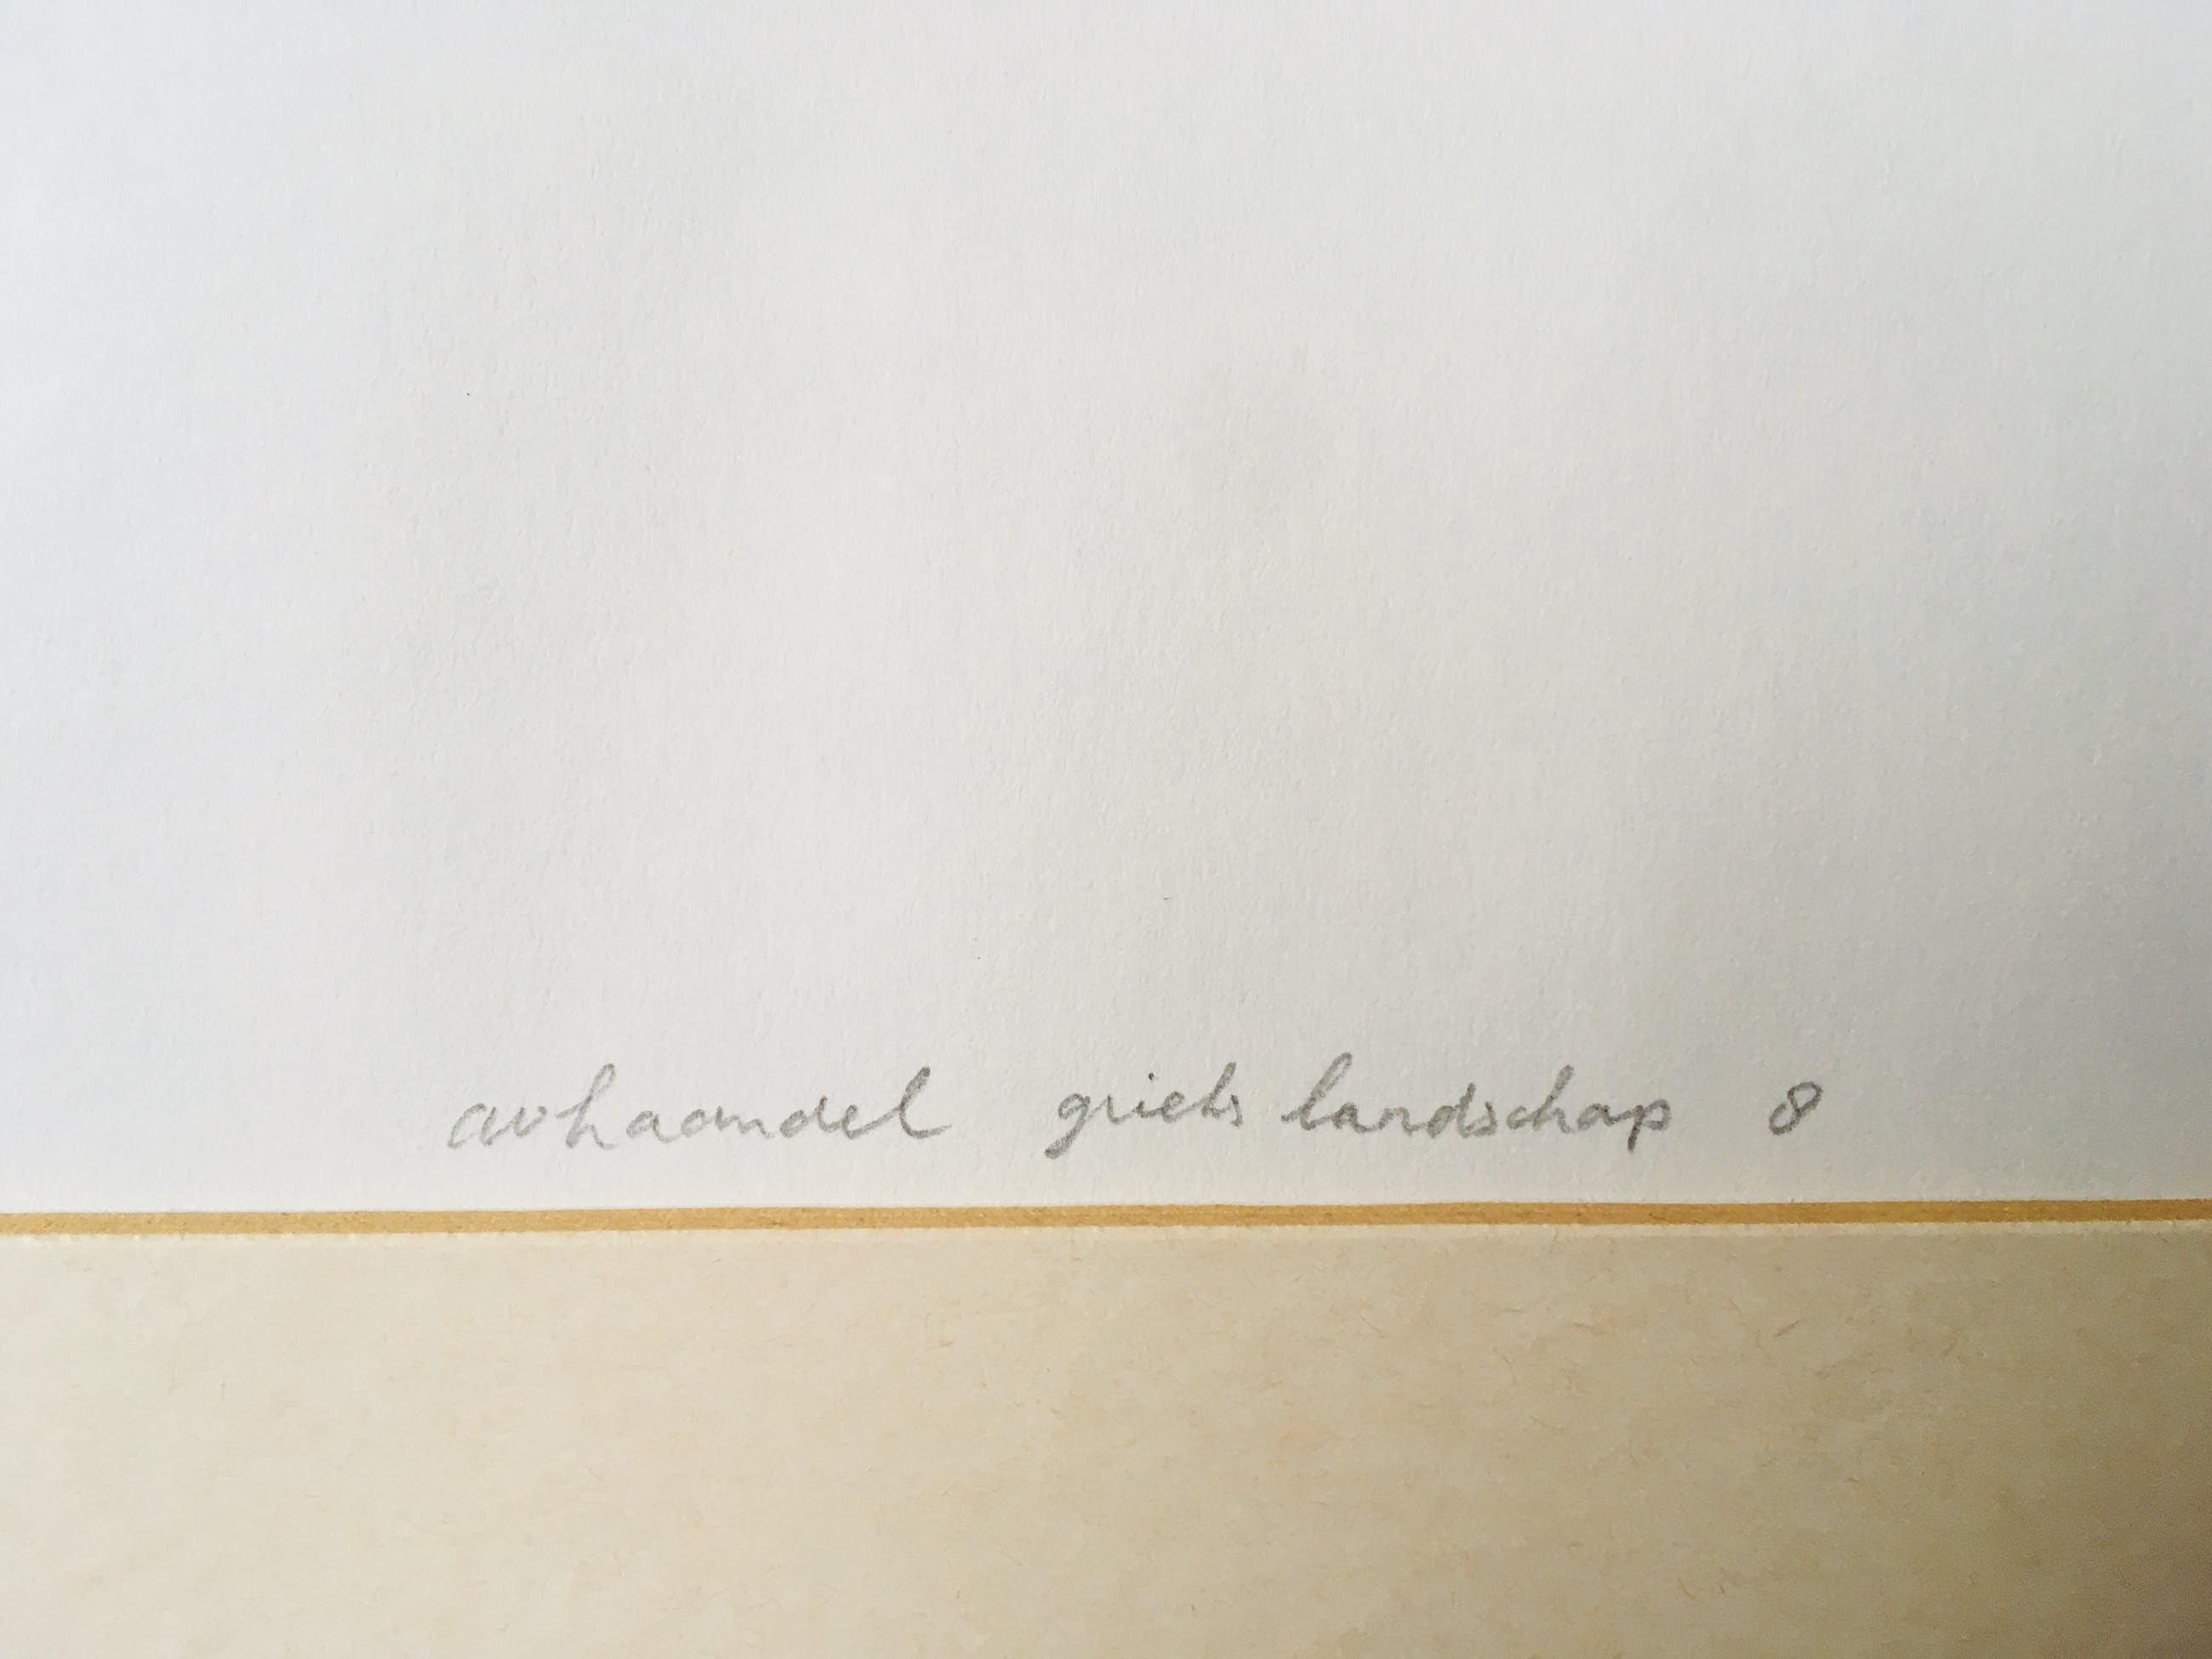 avhaandel grieks landschap 8